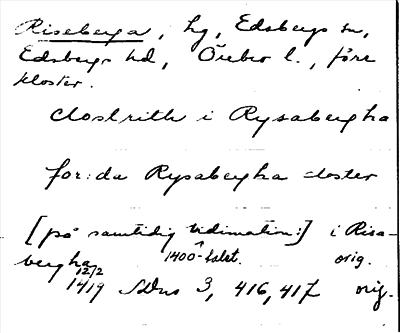 Riseberga, hg, Edsbergs sn,
Edsbergs hd, Örebro l., förr
kloster.
clostrith i Rysabergha
for:da Rysabergha closter
[på samtidig vidimation:] i Risa-
bergha 1400-talet. orig.
12/2
1419 SDns 3, 416, 417 orig.